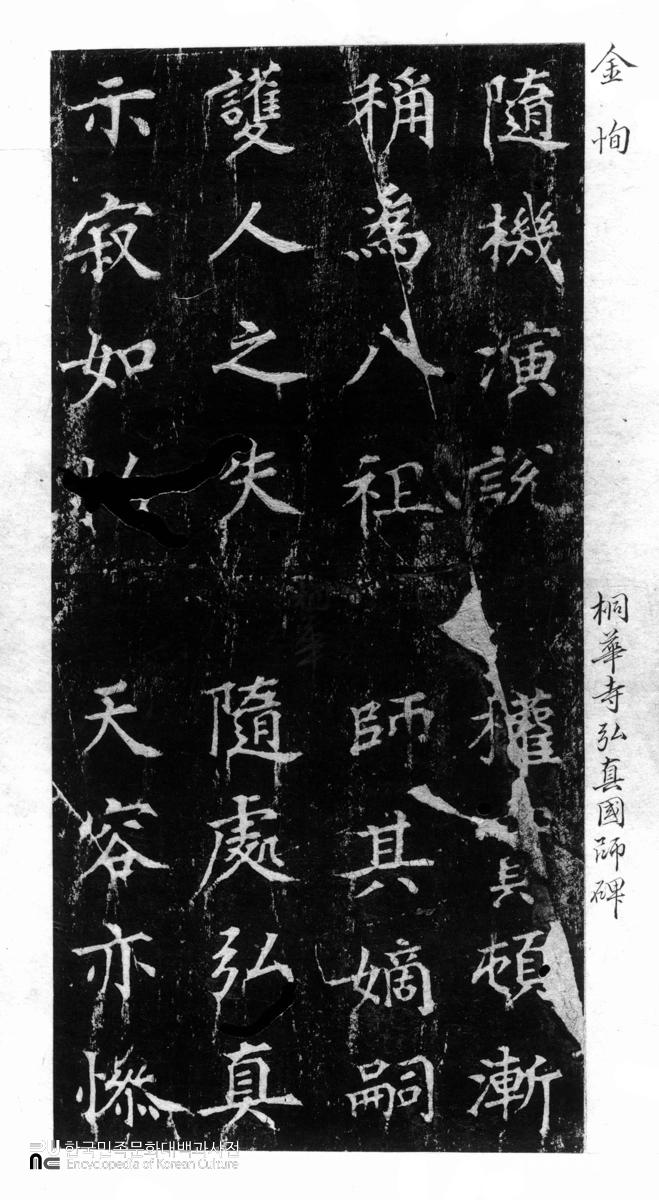 金恂
桐華寺弘真國師碑
隨機演說 權頓漸
稱為八祖 師其嫡嗣
護人之失 隨處弘真
示寂如 天容亦慘
한국민족문화대백과사전
Encyclopedia of Korean Culture